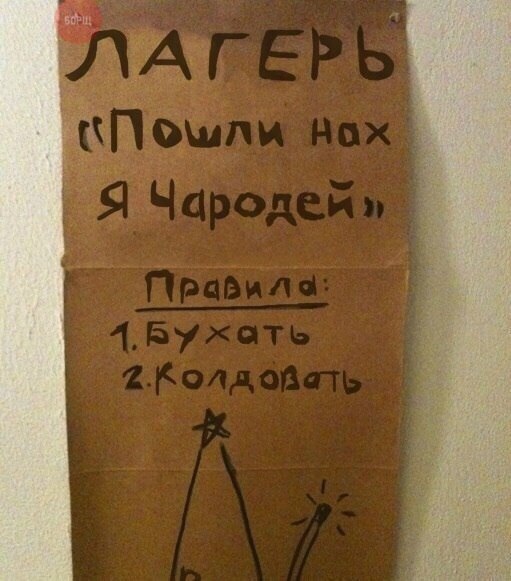 БОРЩ
ЛАГЕРЬ
«Пошли нах
Я Чародей»
Правила:
1. Бухать
2. Колдовать